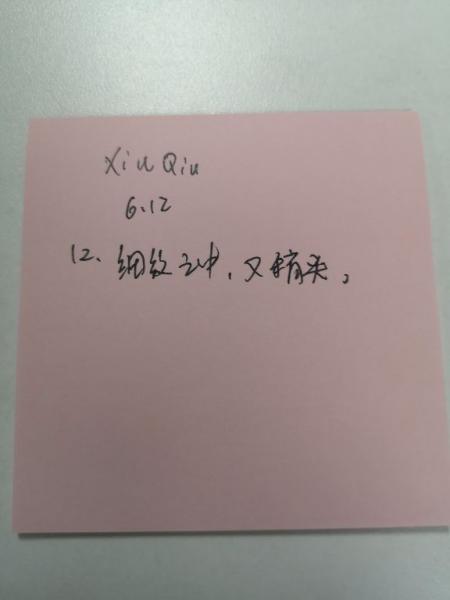 Xiu Qiu
6.12
12、细纹之中,又有头。